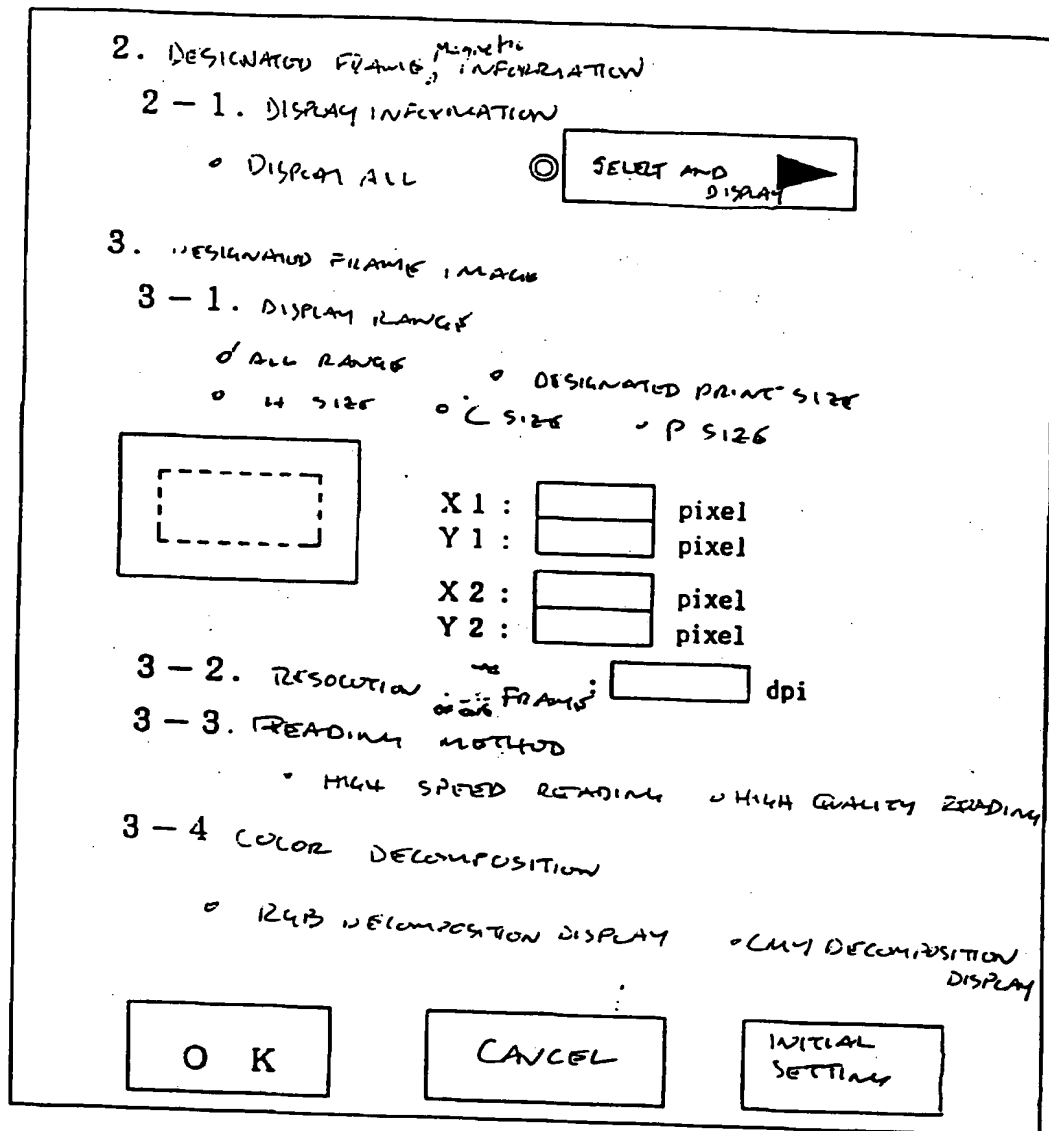 2. DESIGNATED FRAME, Magnetic INFORMATION
2-1. DISPLAY INFORMATION
DISPLAY ALL ◎ SELECT AND DISPLAY
3. DESIGNATED FRAME IMAGE
3-1. DISPLAY RANGE
ALL RANGE DESIGNATED PRINT SIZE
H SIZE C SIZE P SIZE
X1: pixel
Y1: pixel
X2: pixel
Y2: pixel
3-2. RESOLUTION FRAME: dpi
3-3. READING METHOD
HIGH SPEED READING HIGH QUALITY READING
3-4 COLOR DECOMPOSITION
RGB DECOMPOSITION DISPLAY CMY DECOMPOSITION
DISPLAY
OK CANCEL INITIAL
SETTING